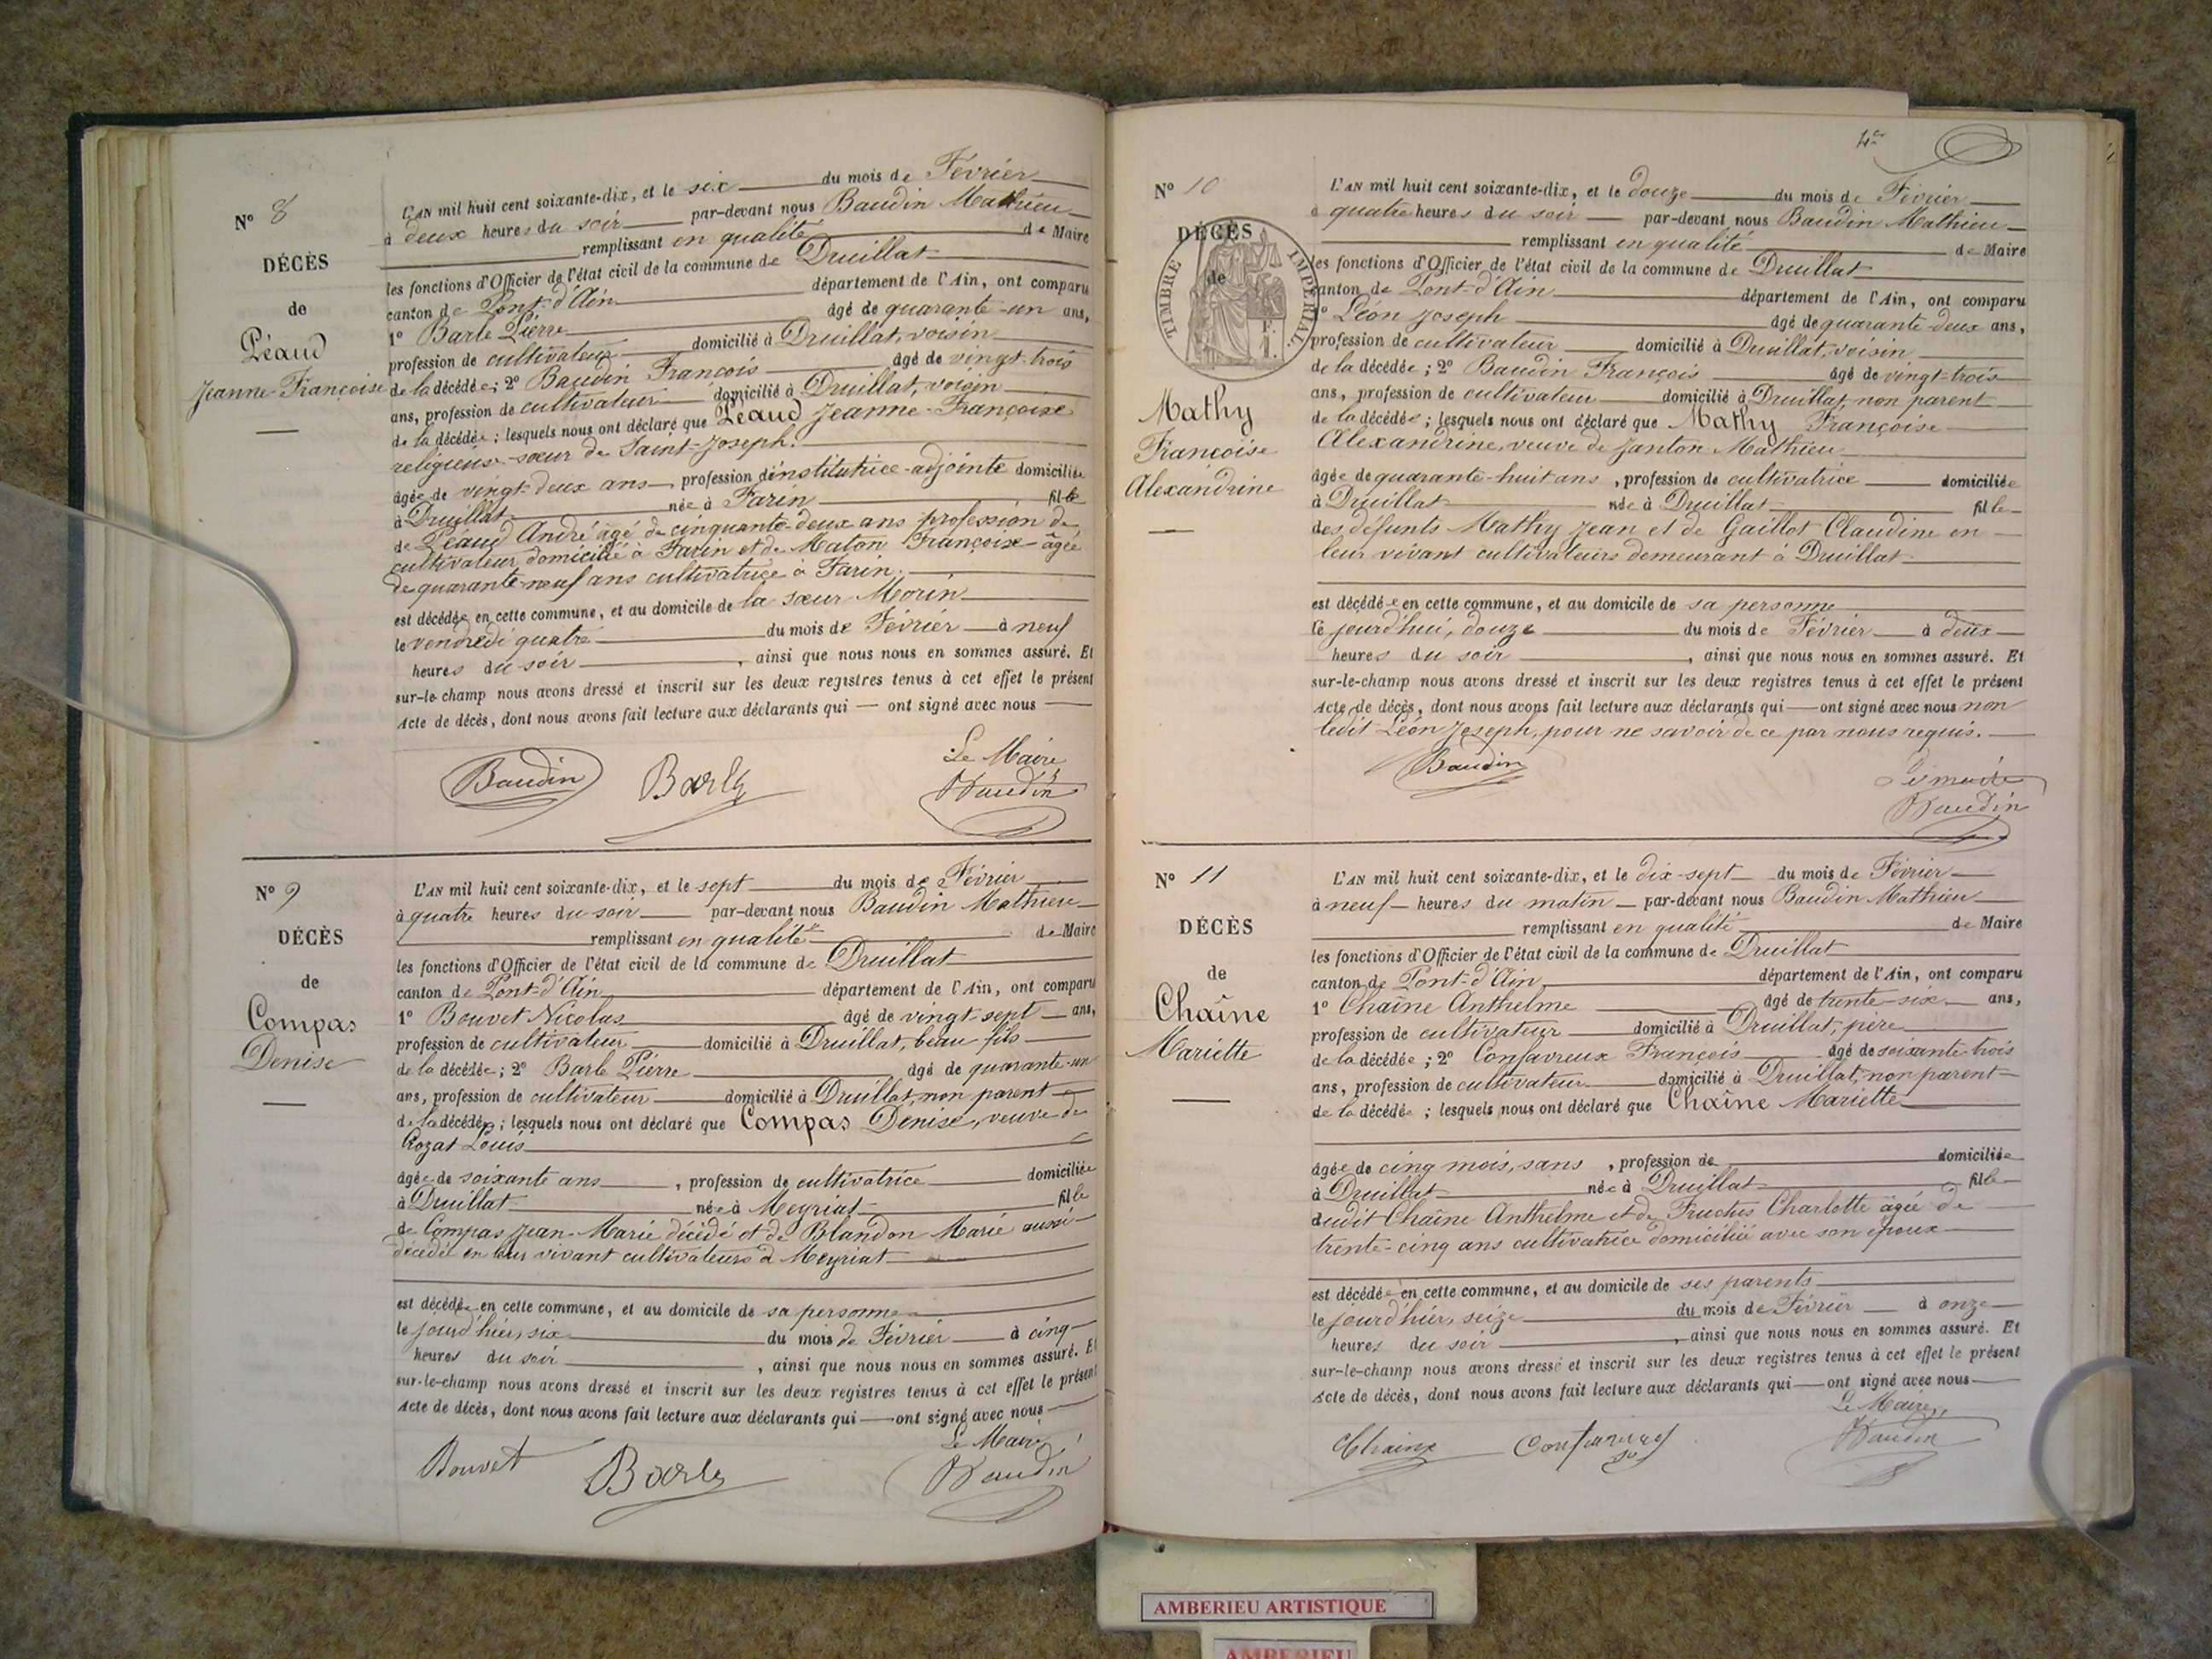 N° 8
DÉCÈS
de
Péaud
Jeanne-Françoise
L'AN mil huit cent soixante-dix, et le six du mois de Février
à deux heures du soir par-devant nous Baudin Mathieu
remplissant en qualité de Maire
les fonctions d'Officier de l'état civil de la commune de Druillat
canton de Pont-d'Ain département de l'Ain, ont comparu
1° Barle Pierre âgé de quarante-un ans,
profession de cultivateur domicilié à Druillat, voisin
de la décédée; 2° Baudin François âgé de vingt-trois
ans, profession de cultivateur domicilié à Druillat, voisin
de la décédée; lesquels nous ont déclaré que Péaud Jeanne-Françoise
religieuse-sœur de Saint-Joseph.
âgée de vingt-deux ans, profession d'institutrice-adjointe domiciliée
à Druillat née à Farin fille
de Péaud André âgé de cinquante-deux ans profession de
cultivateur domicilié à Farin et de Maton Françoise âgée
de quarante-neuf ans cultivatrice à Farin.
est décédée en cette commune, et au domicile de la sœur Morin
le vendredi quatre du mois de Février à neuf
heures du soir, ainsi que nous nous en sommes assuré. Et
sur-le-champ nous avons dressé et inscrit sur les deux registres tenus à cet effet le présent
Acte de décès, dont nous avons fait lecture aux déclarants qui — ont signé avec nous
Le Maire
Baudin Barle Baudin
N° 9
DÉCÈS
de
Compas
Denise
L'AN mil huit cent soixante-dix, et le sept du mois de Février
à quatre heures du soir par-devant nous Baudin Mathieu
remplissant en qualité de Maire
les fonctions d'Officier de l'état civil de la commune de Druillat
canton de Pont-d'Ain département de l'Ain, ont comparu
1° Bouvet Nicolas âgé de vingt-sept ans,
profession de cultivateur domicilié à Druillat, beau fils
de la décédée; 2° Barle Pierre âgé de quarante-un
ans, profession de cultivateur domicilié à Druillat, non parent
de la décédée; lesquels nous ont déclaré que Compas Denise, veuve de
Rozat Louis
âgée de soixante ans, profession de cultivatrice domiciliée
à Druillat née à Meyriat fille
de Compas Jean-Marie décédé et de Blandon Marie aussi
décédée en leur vivant cultivateurs à Meyriat
est décédée en cette commune, et au domicile de sa personne
le jourd'hier, six du mois de Février à cinq
heures du soir, ainsi que nous nous en sommes assuré. Et
sur-le-champ nous avons dressé et inscrit sur les deux registres tenus à cet effet le présent
Acte de décès, dont nous avons fait lecture aux déclarants qui — ont signé avec nous
Le Maire
Bouvet Barle Baudin
4e
N° 10
DÉCÈS
de
TIMBRE IMPÉRIAL
Mathy
Françoise
Alexandrine
L'AN mil huit cent soixante-dix, et le douze du mois de Février
à quatre heures du soir par-devant nous Baudin Mathieu
remplissant en qualité de Maire
les fonctions d'Officier de l'état civil de la commune de Druillat
canton de Pont-d'Ain département de l'Ain, ont comparu
1° Léon Joseph âgé de quarante-deux ans,
profession de cultivateur domicilié à Druillat, voisin
de la décédée; 2° Baudin François âgé de vingt-trois
ans, profession de cultivateur domicilié à Druillat, non parent
de la décédée; lesquels nous ont déclaré que Mathy Françoise
Alexandrine, veuve de Janton Mathieu
âgée de quarante-huit ans, profession de cultivatrice domiciliée
à Druillat née à Druillat fille
des défunts Mathy Jean et de Gaillot Claudine en
leur vivant cultivateurs demeurant à Druillat
est décédée en cette commune, et au domicile de sa personne
le jourd'hui, douze du mois de Février à deux
heures du soir, ainsi que nous nous en sommes assuré. Et
sur-le-champ nous avons dressé et inscrit sur les deux registres tenus à cet effet le présent
Acte de décès, dont nous avons fait lecture aux déclarants qui — ont signé avec nous non
ledit Léon Joseph, pour ne savoir de ce par nous requis.
Baudin Le maire
Baudin
N° 11
DÉCÈS
de
Chaîne
Mariette
L'AN mil huit cent soixante-dix, et le dix-sept du mois de Février
à neuf heures du matin par-devant nous Baudin Mathieu
remplissant en qualité de Maire
les fonctions d'Officier de l'état civil de la commune de Druillat
canton de Pont-d'Ain département de l'Ain, ont comparu
1° Chaîne Anthelme âgé de trente-six ans,
profession de cultivateur domicilié à Druillat, père
de la décédée; 2° Confavreux François âgé de soixante-trois
ans, profession de cultivateur domicilié à Druillat, non parent
de la décédée; lesquels nous ont déclaré que Chaîne Mariette
âgée de cinq mois, sans, profession de domiciliée
à Druillat née à Druillat fille
dudit Chaîne Anthelme et de Fruchis Charlotte âgée de
trente-cinq ans cultivatrice domiciliée avec son époux
est décédée en cette commune, et au domicile de ses parents
le jourd'hier, seize du mois de Février à onze
heures du soir, ainsi que nous nous en sommes assuré. Et
sur-le-champ nous avons dressé et inscrit sur les deux registres tenus à cet effet le présent
Acte de décès, dont nous avons fait lecture aux déclarants qui — ont signé avec nous
Le Maire
Chaine Confavreux Baudin
AMBERIEU ARTISTIQUE
AMBERIEU